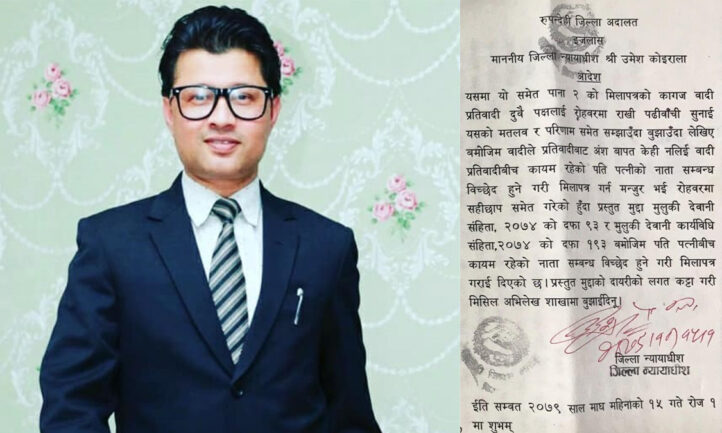 रुपन्देही जिल्ला अदालत
इजलास
माननीय जिल्ला न्यायाधीश श्री उमेश कोइराला
आदेश
यसमा यो समेत पाना २ को मिलापत्रको कागज वादी
प्रतिवादी दुबै पक्षलाई रोहबरमा राखी पढीबाँची सुनाई
यसको मतलव र परिणाम समेत सम्झाउँदा बुझाउँदा लेखिए
बमोजिम वादीले प्रतिवादीबाट अंश बापत केही नलिई वादी
प्रतिवादीबीच कायम रहेको पति पत्नीको नाता सम्बन्ध
विच्छेद हुने गरी मिलापत्र गर्न मन्जुर भई रोहवरमा
सहीछाप समेत गरेको हुँदा प्रस्तुत मुद्दा मुलुकी देवानी
संहिता, २०७४ को दफा ९३ र मुलुकी देवानी कार्यविधि
संहिता,२०७४ को दफा १९३ बमोजिम पति पत्नीबीच
कायम रहेको नाता सम्बन्ध विच्छेद हुने गरी मिलापत्र
गराई दिएको छ। प्रस्तुत मुद्दाको दायरीको लगत कट्टा गरी
मिसिल अभिलेख शाखामा बुझाईदिनू।
जिल्ला न्यायाधीश
जिल्ला न्यायाधीश
ईति सम्वत २०७९ साल माघ महिनाको १५ गते रोज १
मा शुभम्